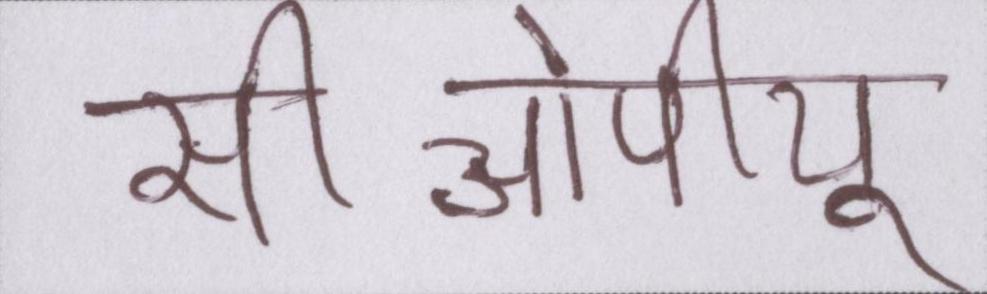 सी ओपीयू